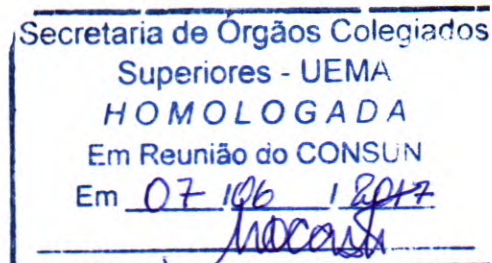 Secretaria de Órgãos Colegiados
Superiores - UEMA
HOMOLOGADA
Em Reunião do CONSUN
Em 07/06/2017